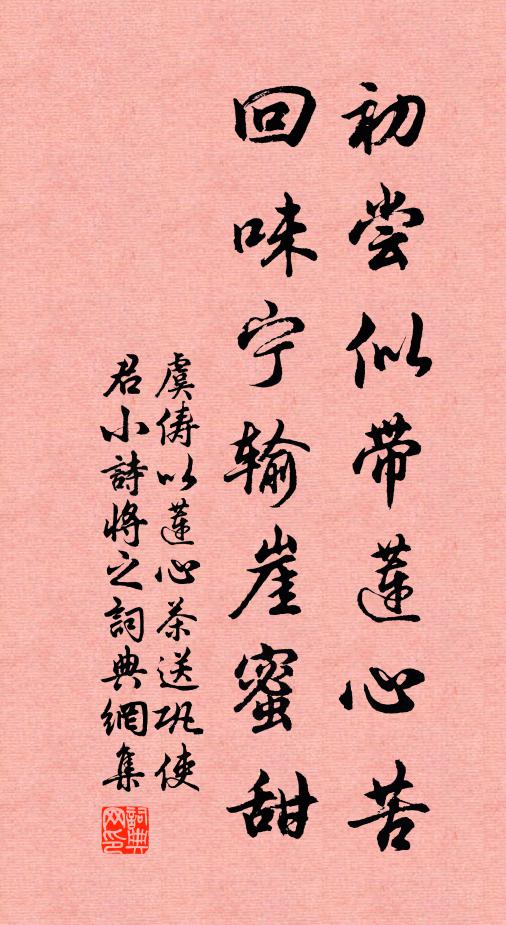 初尝似带莲心苦
回味宁输崖蜜甜
虞俦以莲心茶送巩使
君小詩将之詞典網集
詞典网印